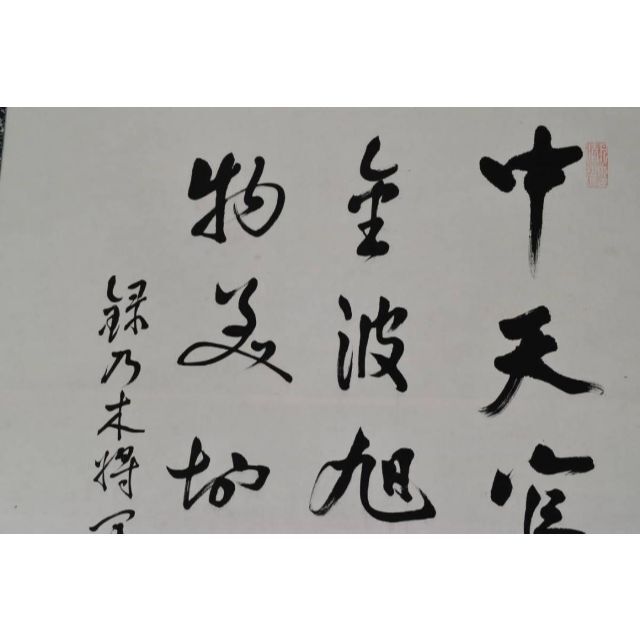 中天
金波旭
物美地
録乃木将